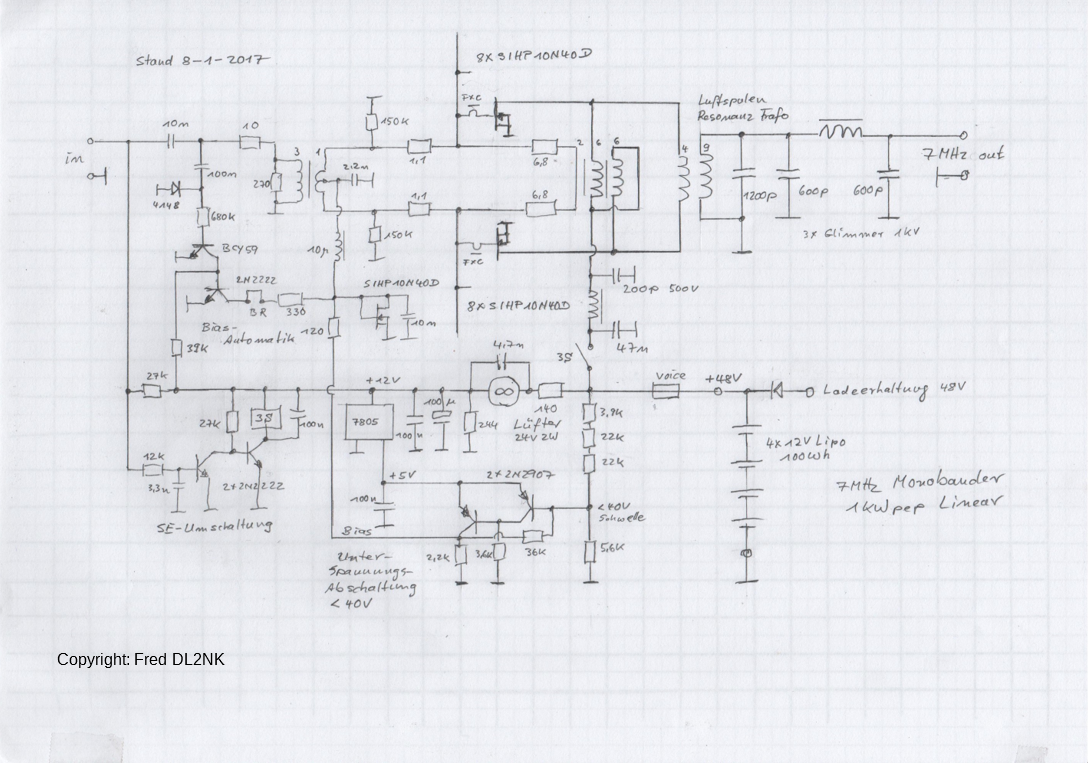 Stand 8-1-2017
8X SIHP10N40D
FXC
Luftspulen
Resonanz Trafo
10n
10
150K
in
100n
3
1
2,2n
1,1
6,8
2
6
6
4
9
7MHz out
4148
270
1200p
600p
600p
680K
1,1
6,8
150K
3X Glimmer 1KV
BCY59
10µ
FXC
2N2222
SIHP10N40D
200p 500V
BR
330
8X SIHP10N40D
Bias-
Automatik
120
10n
47n
39K
4,7n
3S
27K
+12V
voice
+48V
Ladeerhaltung 48V
100µ
140
3,9K
27K
3S
100n
7805
100n
244
Lüfter
24V 2W
22K
4X12V Lipo
100Wh
12K
22K
3,3n
2+2N2222
+5V
2+2N2907
7MHz Monobander
1KW pep Linear
SE-Umschaltung
100n
<40V
Schwelle
Bias
2,2K
3,6K
36K
5,6K
Unter-
Spannungs-
Abschaltung
<40V
Copyright: Fred DL2NK